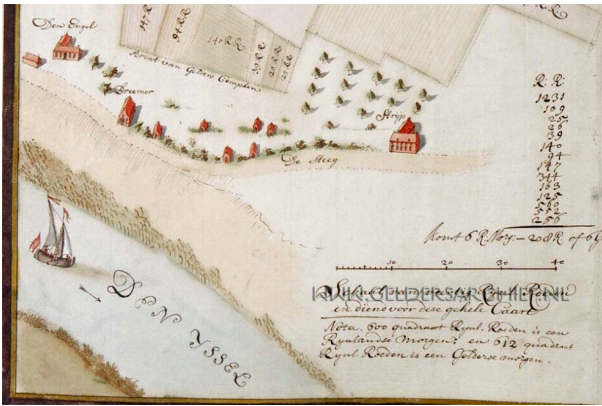 Den Engel
147 RR
94 RR
140 RR
39 RR
Bremer
Strijp
De Steeg
R: R:
1231
109
25
20
39
140
94
147
344
163
125
256
Komt 6 R. Morg:— 208 R of 6
10 20 30 40
WWW.GELDERSARCHIEF.NL
en dient voor dese gehele Caart
Nota. 600 quadraat Rijnl. Roeden is een
Rijnlandse Morgen; en 612 quadraat
Rijnl. Roeden is een Gelderse morgen.
DEN YSSEL